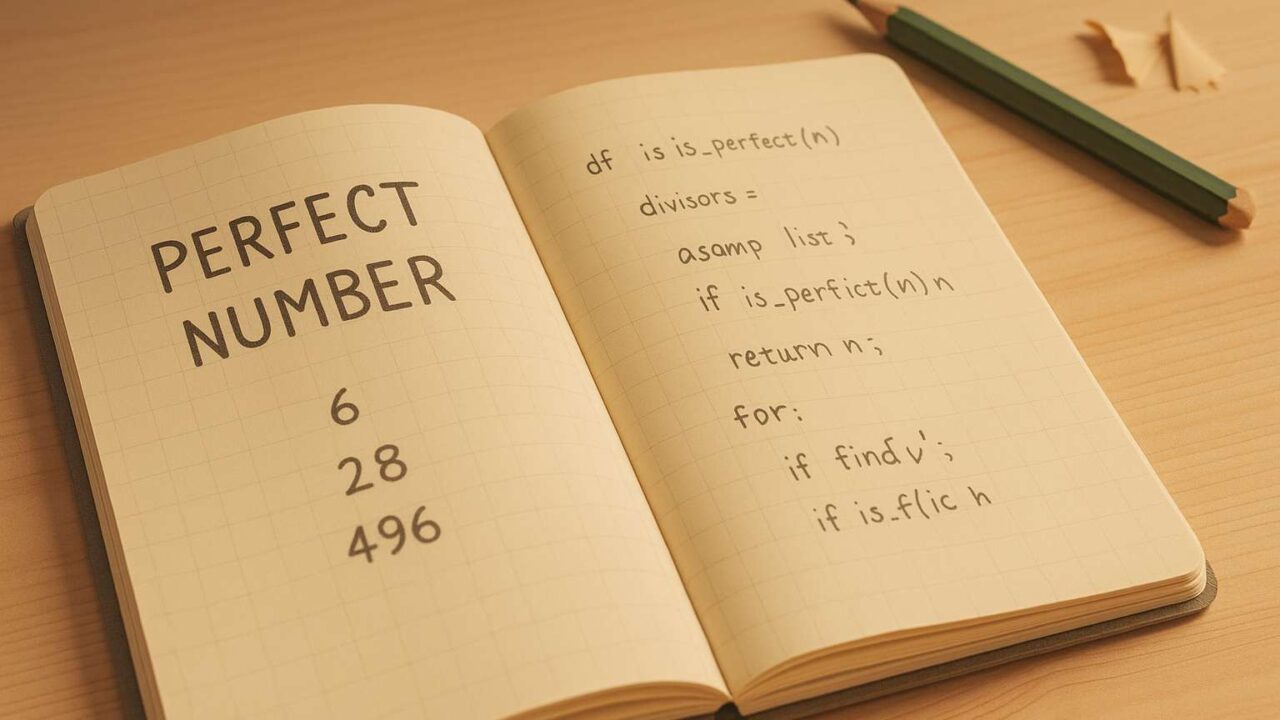 PERFECT
NUMBER
6
28
496
df is is_perfect(n)
divisors =
asamp list ;
if is_perfict(n) n
return n ;
for:
if find v' ;
if is_f(ic h